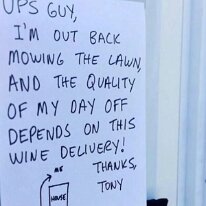 UPS GUY,
I'M OUT BACK
MOWING THE LAWN,
AND THE QUALITY
OF MY DAY OFF
DEPENDS ON THIS
WINE DELIVERY!
THANKS,
TONY
ME
HOUSE